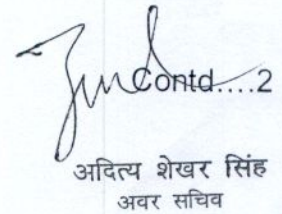 Contd....2
अदित्य शेखर सिंह
अवर सचिव